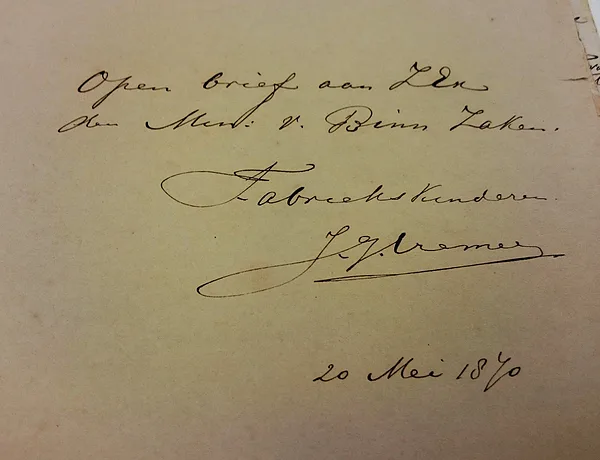 Open brief aan ZEx
den Min: v. Binn Zaken.
Fabriekskinderen.
J.J. Cremer
20 Mei 1870